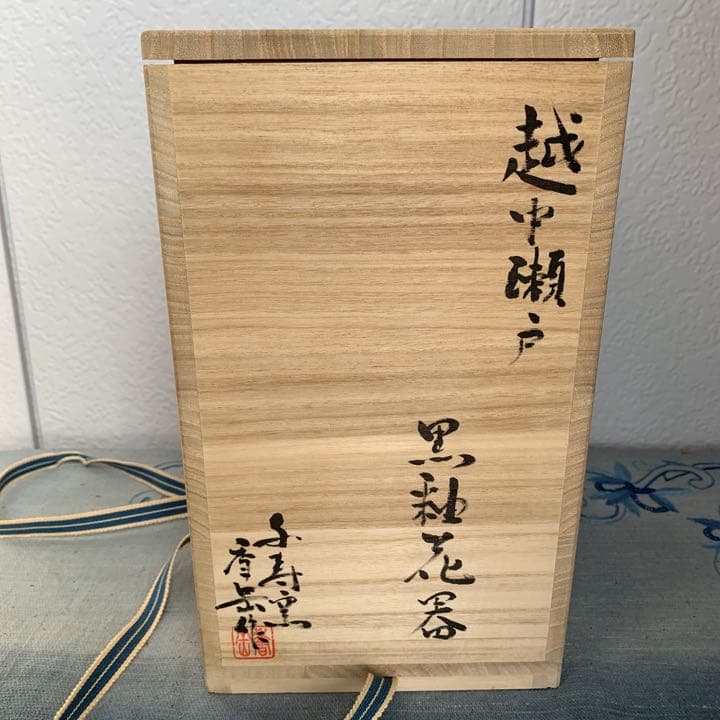 越中瀬戸
黒釉花器
千寿窯
香岳作